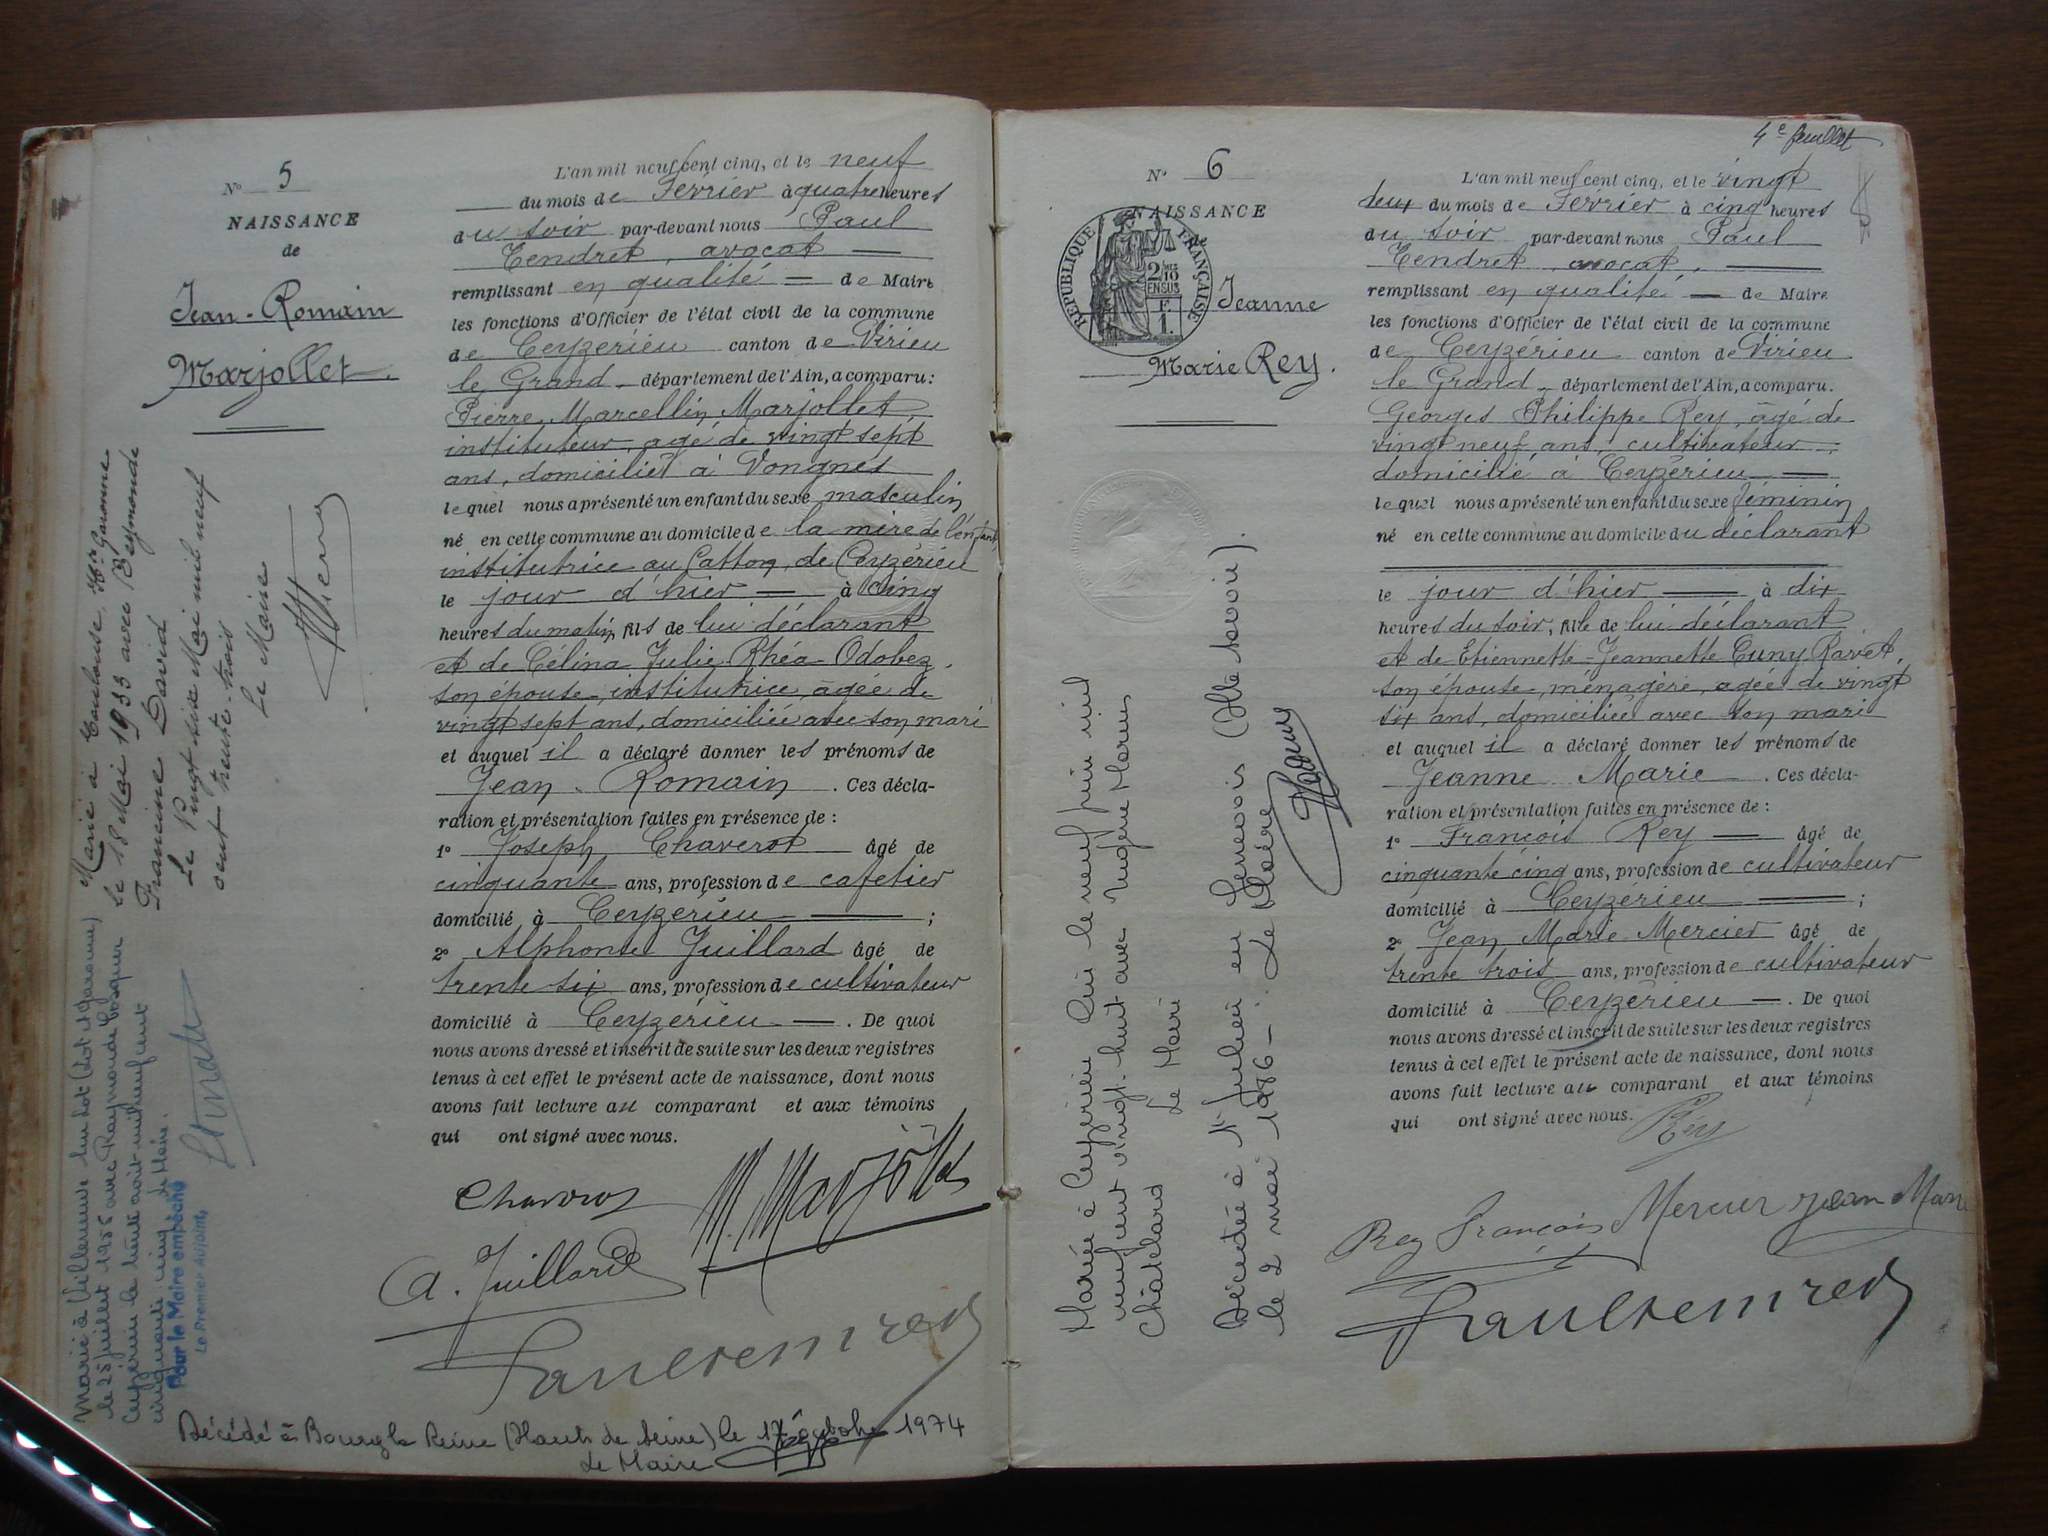 Nº 5
NAISSANCE
de
Jean-Romain
Marjollet.
L'an mil neuf cent cinq, et le neuf
du mois de Fevrier à quatre heures
du soir par-devant nous Paul
Tendret, avocat
remplissant en qualité de Maire
les fonctions d'Officier de l'état civil de la commune
de Ceyzérieu canton de Virieu
le Grand département de l'Ain, a comparu:
Pierre Marcellin Marjollet,
instituteur, agé de vingt sept
ans, domicilié à Vongnes
lequel nous a présenté un enfant du sexe masculin
né en cette commune au domicile de la mère de l'enfant,
institutrice au Catton, de Ceyzérieu
le jour d'hier à cinq
heures du matin, fils de lui déclarant
et de Célina Julie Rhéa Odobez,
son épouse, institutrice, agée de
vingt sept ans, domiciliée avec son mari
et auquel il a déclaré donner les prénoms de
Jean Romain. Ces décla-
ration et présentation faites en présence de :
1º Joseph Chaverot âgé de
cinquante ans, profession de cafetier
domicilié à Ceyzérieu ;
2º Alphonse Juillard âgé de
trente six ans, profession de cultivateur
domicilié à Ceyzérieu. De quoi
nous avons dressé et inscrit de suite sur les deux registres
tenus à cet effet le présent acte de naissance, dont nous
avons fait lecture au comparant et aux témoins
qui ont signé avec nous.
Chaverot M. Marjollet
A. Juillard
Paul Tendret
Marié à Toulouse, Hte Garonne
le 18 Mai 1933 avec Reymonde
Francine David
Le Vingt six Mai mil neuf
cent trente-trois
Le Maire
Marié à Villeneuve sur Lot (Lot et Garonne)
le 25 juillet 1955 avec Raymonde
Ceyzérieu le trente août mil neuf cent
cinquante cinq
Pour le Maire empêché
Le Premier Adjoint,
Décédé à Bourg la Reine (Hauts de Seine) le 17 octobre 1974
Le Maire
4e feuillet
Nº 6
NAISSANCE
de
RÉPUBLIQUE FRANÇAISE
Jeanne
Marie Rey.
L'an mil neuf cent cinq, et le vingt
deux du mois de Février à cinq heures
du soir par-devant nous Paul
Tendret avocat,
remplissant en qualité de Maire
les fonctions d'Officier de l'état civil de la commune
de Ceyzérieu canton de Virieu
le Grand département de l'Ain, a comparu.
Georges Philippe Rey, âgé de
vingt neuf ans, cultivateur
domicilié à Ceyzérieu
lequel nous a présenté un enfant du sexe féminin
né en cette commune au domicile du déclarant
le jour d'hier à dix
heures du soir, fille de lui déclarant
et de Etiennette-Jeannette Cuny Ravet,
son épouse, ménagère, agée de vingt
six ans, domiciliée avec son mari
et auquel il a déclaré donner les prénoms de
Jeanne Marie. Ces décla-
ration et présentation faites en présence de :
1º François Rey âgé de
cinquante cinq ans, profession de cultivateur
domicilié à Ceyzérieu ;
2º Jean Marie Mercier âgé de
trente trois ans, profession de cultivateur
domicilié à Ceyzérieu. De quoi
nous avons dressé et inscrit de suite sur les deux registres
tenus à cet effet le présent acte de naissance, dont nous
avons fait lecture au comparant et aux témoins
qui ont signé avec nous.
Rey
Rey François Mercier Jean Mari
Paul Tendret
Mariée à Ceyzérieu le neuf juin mil
neuf cent vingt-huit avec Eugène Marius
Chatelard
Le Maire
Décédée à St Julien en Genevois (Hte Savoie).
le 2 mai 1986 -. Le Maire